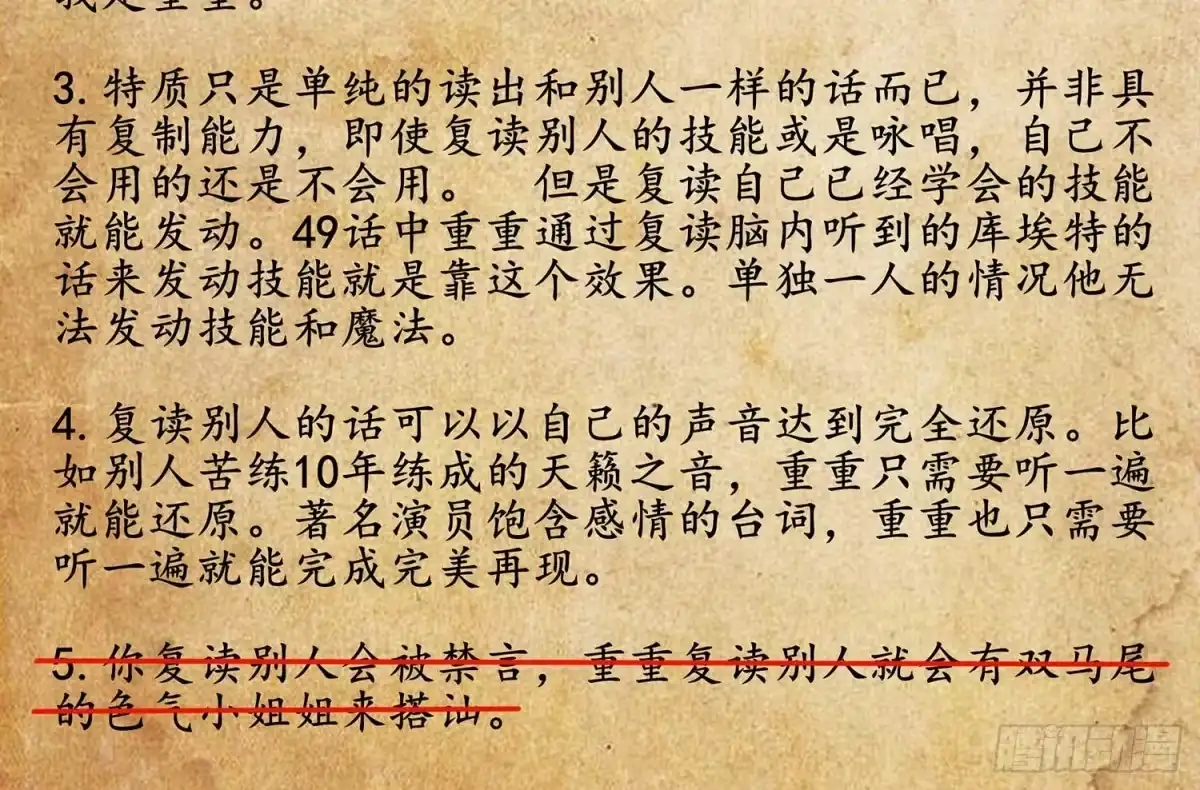 我是重重。
3. 特质只是单纯的读出和别人一样的话而已，并非具
有复制能力，即使复读别人的技能或是咏唱，自己不
会用的还是不会用。 但是复读自己已经学会的技能
就能发动。49话中重重通过复读脑内听到的库埃特的
话来发动技能就是靠这个效果。单独一人的情况他无
法发动技能和魔法。
4. 复读别人的话可以以自己的声音达到完全还原。比
如别人苦练10年练成的天籁之音，重重只需要听一遍
就能还原。著名演员饱含感情的台词，重重也只需要
听一遍就能完成完美再现。
5. 你复读别人会被禁言，重重复读别人就会有双马尾
的色气小姐姐来搭讪。
腾讯动漫